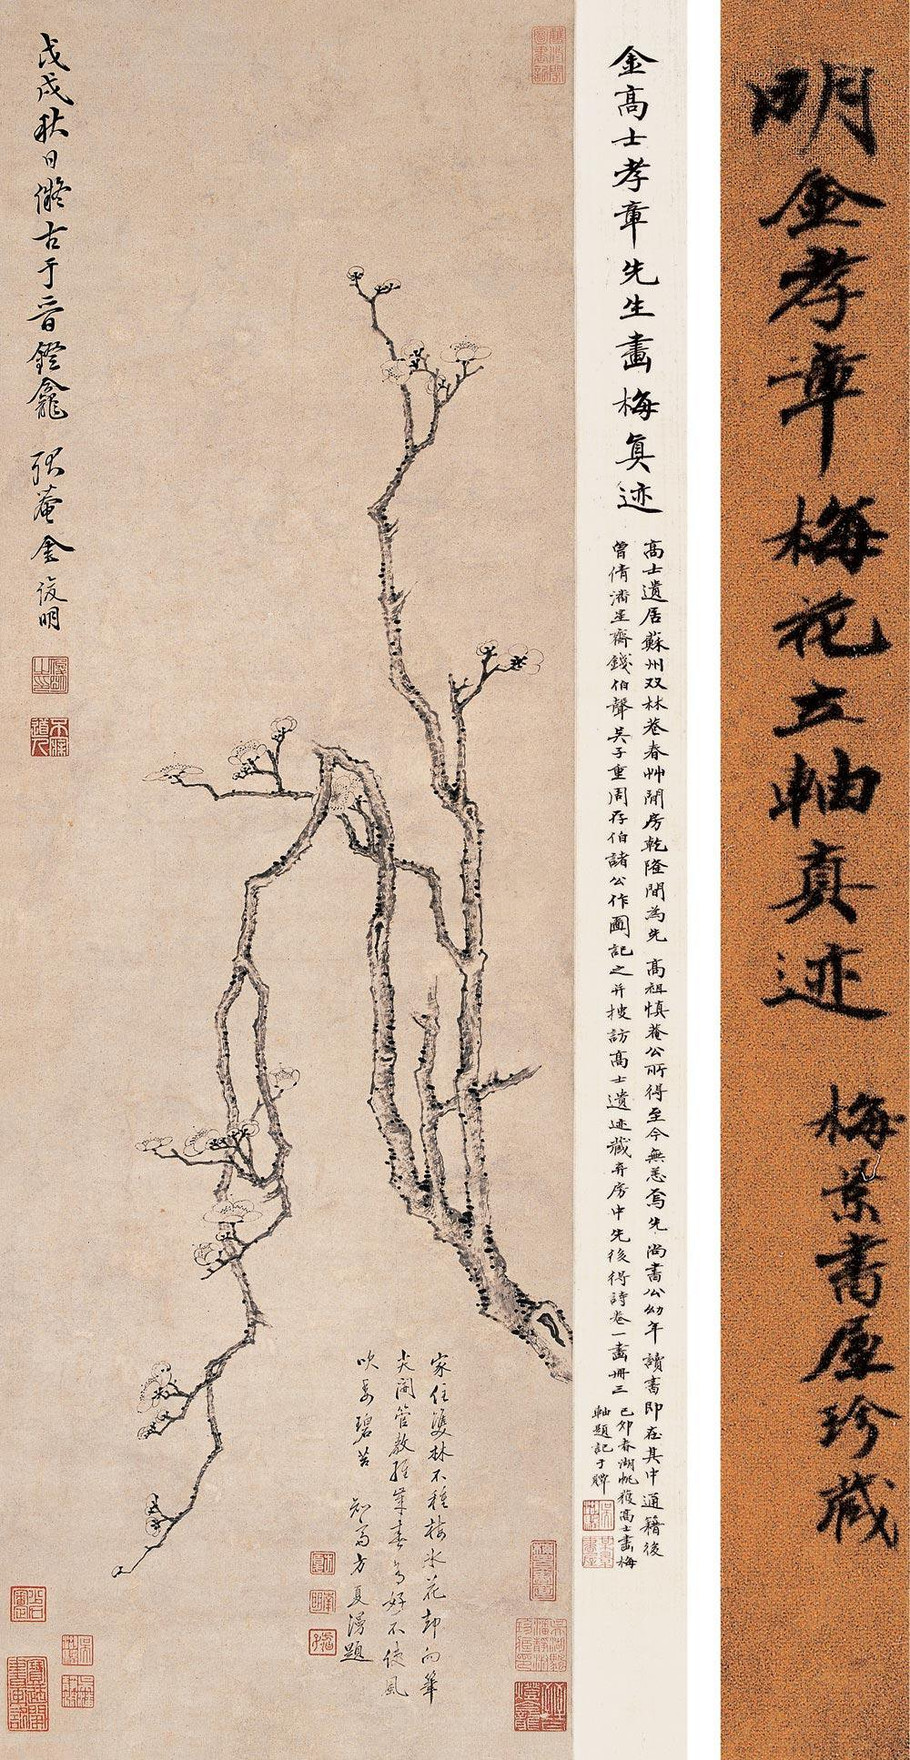 明金孝章梅花立軸真迹
梅景書屋珍藏
金高士孝章先生畫梅真迹
高士遺居蘇州双林巷春艸閒房乾隆間為先高祖慎菴公所得至今無恙焉先尚書公幼年讀書即在其中通籍後
曾倩潘星齋錢伯聲吳子重周存伯諸公作圖記之并搜訪高士遺迹藏弆房中先後得詩卷一畫冊三
己卯春湖帆獲高士畫梅
軸題記于髀
戊戌秋日儗古于音鐙龕
耿菴金俊明
家住雙林不種梅氷花却向筆
尖開管教經年春為好不使風
吹委碧苔
知尚方夏漫題